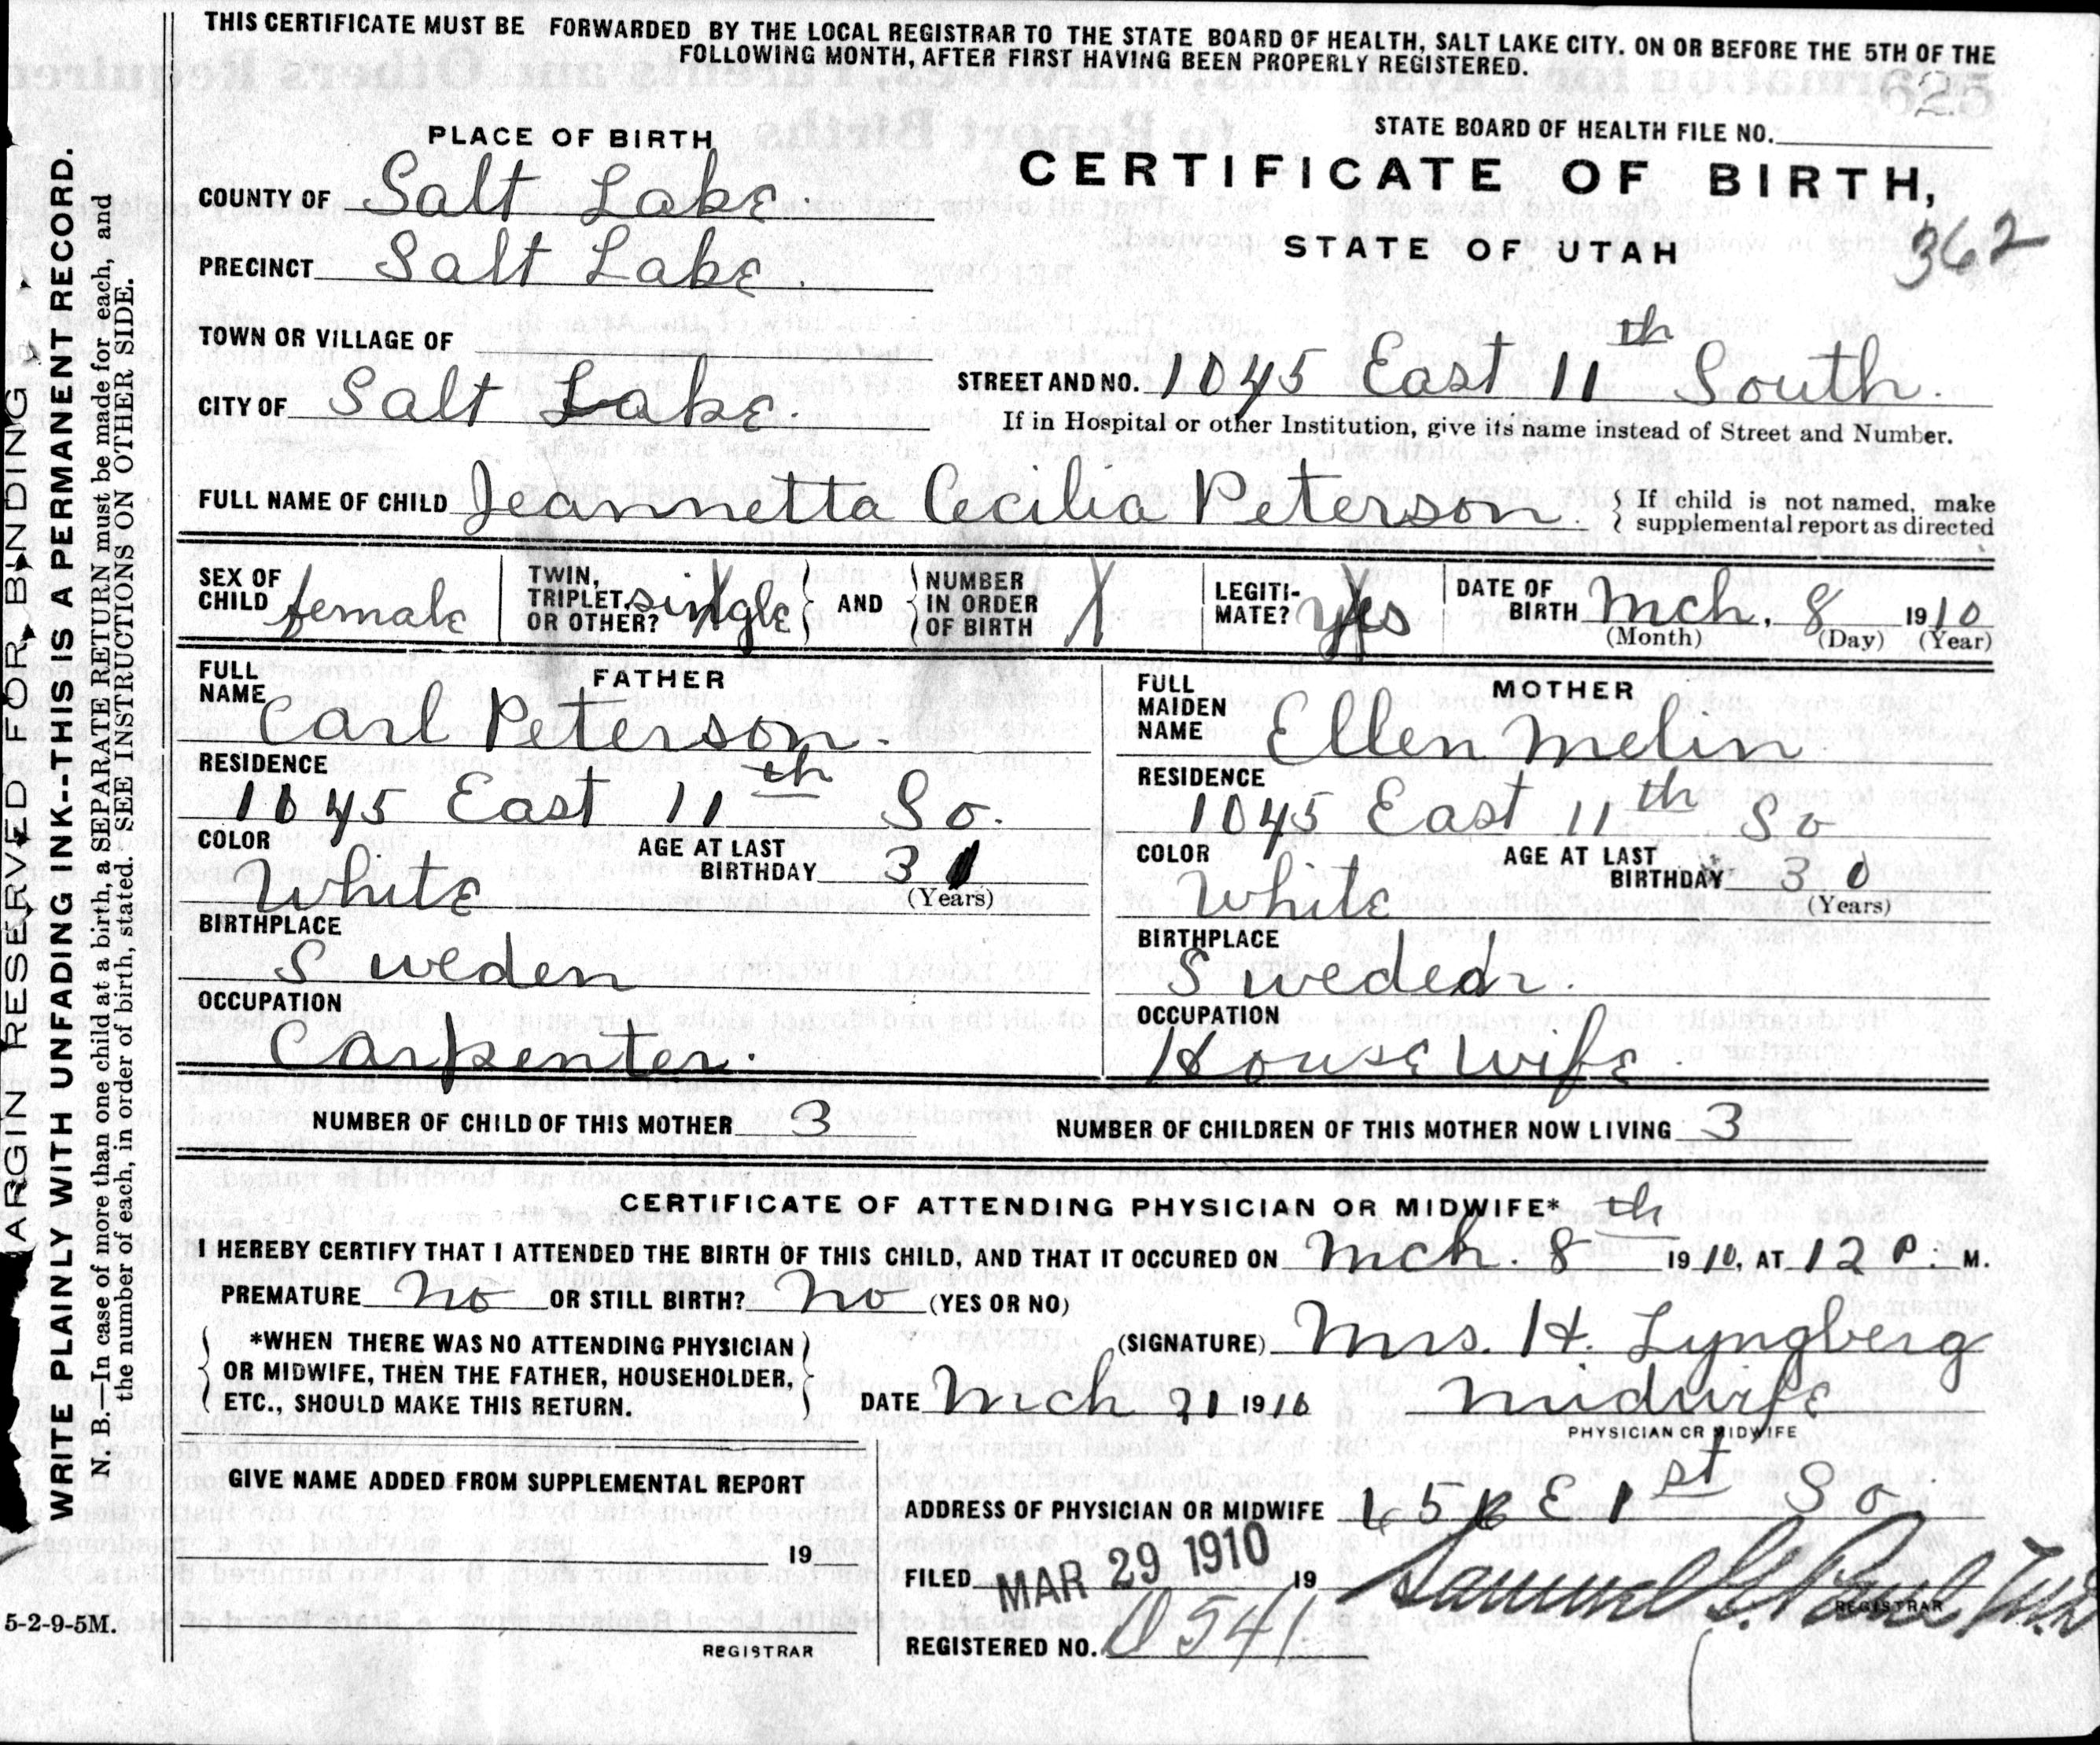 THIS CERTIFICATE MUST BE FORWARDED BY THE LOCAL REGISTRAR TO THE STATE BOARD OF HEALTH, SALT LAKE CITY. ON OR BEFORE THE 5TH OF THE
FOLLOWING MONTH, AFTER FIRST HAVING BEEN PROPERLY REGISTERED.
ARGIN RESERVED FOR BINDING
WRITE PLAINLY WITH UNFADING INK--THIS IS A PERMANENT RECORD.
N. B.—In case of more than one child at a birth, a SEPARATE RETURN must be made for each, and
the number of each, in order of birth, stated. SEE INSTRUCTIONS ON OTHER SIDE.
STATE BOARD OF HEALTH FILE NO.
CERTIFICATE OF BIRTH,
STATE OF UTAH
362
PLACE OF BIRTH
COUNTY OF Salt Lake.
PRECINCT Salt Lake.
TOWN OR VILLAGE OF
CITY OF Salt Lake.
STREET AND NO. 1045 East 11th South.
If in Hospital or other Institution, give its name instead of Street and Number.
FULL NAME OF CHILD Jeannetta Cecilia Peterson.
{ If child is not named, make
supplemental report as directed
SEX OF CHILD female
TWIN, TRIPLET, OR OTHER? single } AND { NUMBER IN ORDER OF BIRTH
LEGITI-MATE? yes
DATE OF BIRTH Mch. 8 1910
(Month) (Day) (Year)
FATHER
FULL NAME Carl Peterson.
RESIDENCE
1045 East 11th So.
COLOR White
AGE AT LAST BIRTHDAY 31
(Years)
BIRTHPLACE
Sweden
OCCUPATION
Carpenter.
MOTHER
FULL MAIDEN NAME Ellen Melin
RESIDENCE
1045 East 11th So
COLOR White
AGE AT LAST BIRTHDAY 30
(Years)
BIRTHPLACE
Sweden.
OCCUPATION
Housewife.
NUMBER OF CHILD OF THIS MOTHER 3 NUMBER OF CHILDREN OF THIS MOTHER NOW LIVING 3
CERTIFICATE OF ATTENDING PHYSICIAN OR MIDWIFE*
I HEREBY CERTIFY THAT I ATTENDED THE BIRTH OF THIS CHILD, AND THAT IT OCCURED ON Mch. 8th 1910, AT 12 P. M.
PREMATURE No OR STILL BIRTH? No (YES OR NO)
{ *WHEN THERE WAS NO ATTENDING PHYSICIAN
OR MIDWIFE, THEN THE FATHER, HOUSEHOLDER,
ETC., SHOULD MAKE THIS RETURN. }
(SIGNATURE) Mrs. H. Lyngberg
DATE Mch 21 1910 midwife
PHYSICIAN OR MIDWIFE
GIVE NAME ADDED FROM SUPPLEMENTAL REPORT
19
REGISTRAR
ADDRESS OF PHYSICIAN OR MIDWIFE E 1st So
FILED MAR 29 1910 19
REGISTRAR
REGISTERED NO. 541
5-2-9-5M.